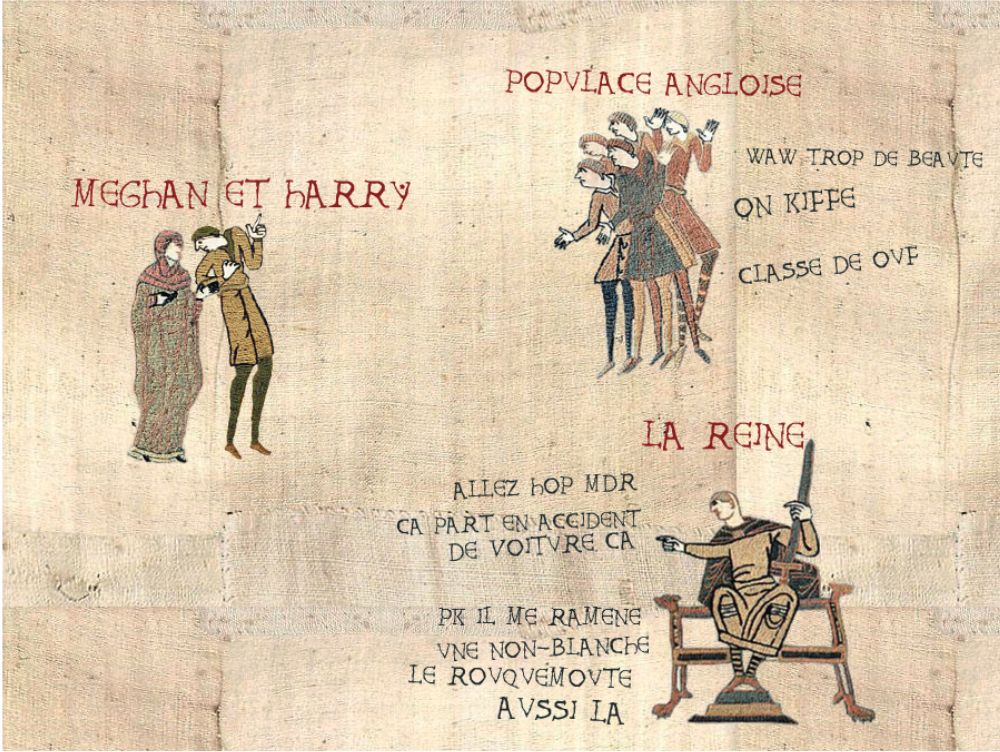 POPVLACE ANGLOISE
WAW TROP DE BEAVTE
ON KIFFE
CLASSE DE OVF
MEGHAN ET HARRY
LA REINE
ALLEZ HOP MDR
CA PART EN ACCIDENT
DE VOITVRE CA
PK IL ME RAMENE
VNE NON-BLANCHE
LE ROVQVEMOVTE
AVSSI LA